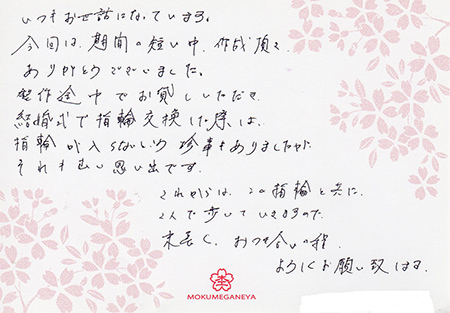 いつもお世話になっています。
今回は、期間の短い中、作成頂き
ありがとうございました。
製作途中でお貸しいただき
結婚式で指輪交換した際は、
指輪が入らないいう珍事もありましたが
それも良い思い出です。
これからは、この指輪と共に、
2人で歩いていきますので
末長く、おつき合いの程、
よろしくお願い致します。
MOKUMEGANEYA